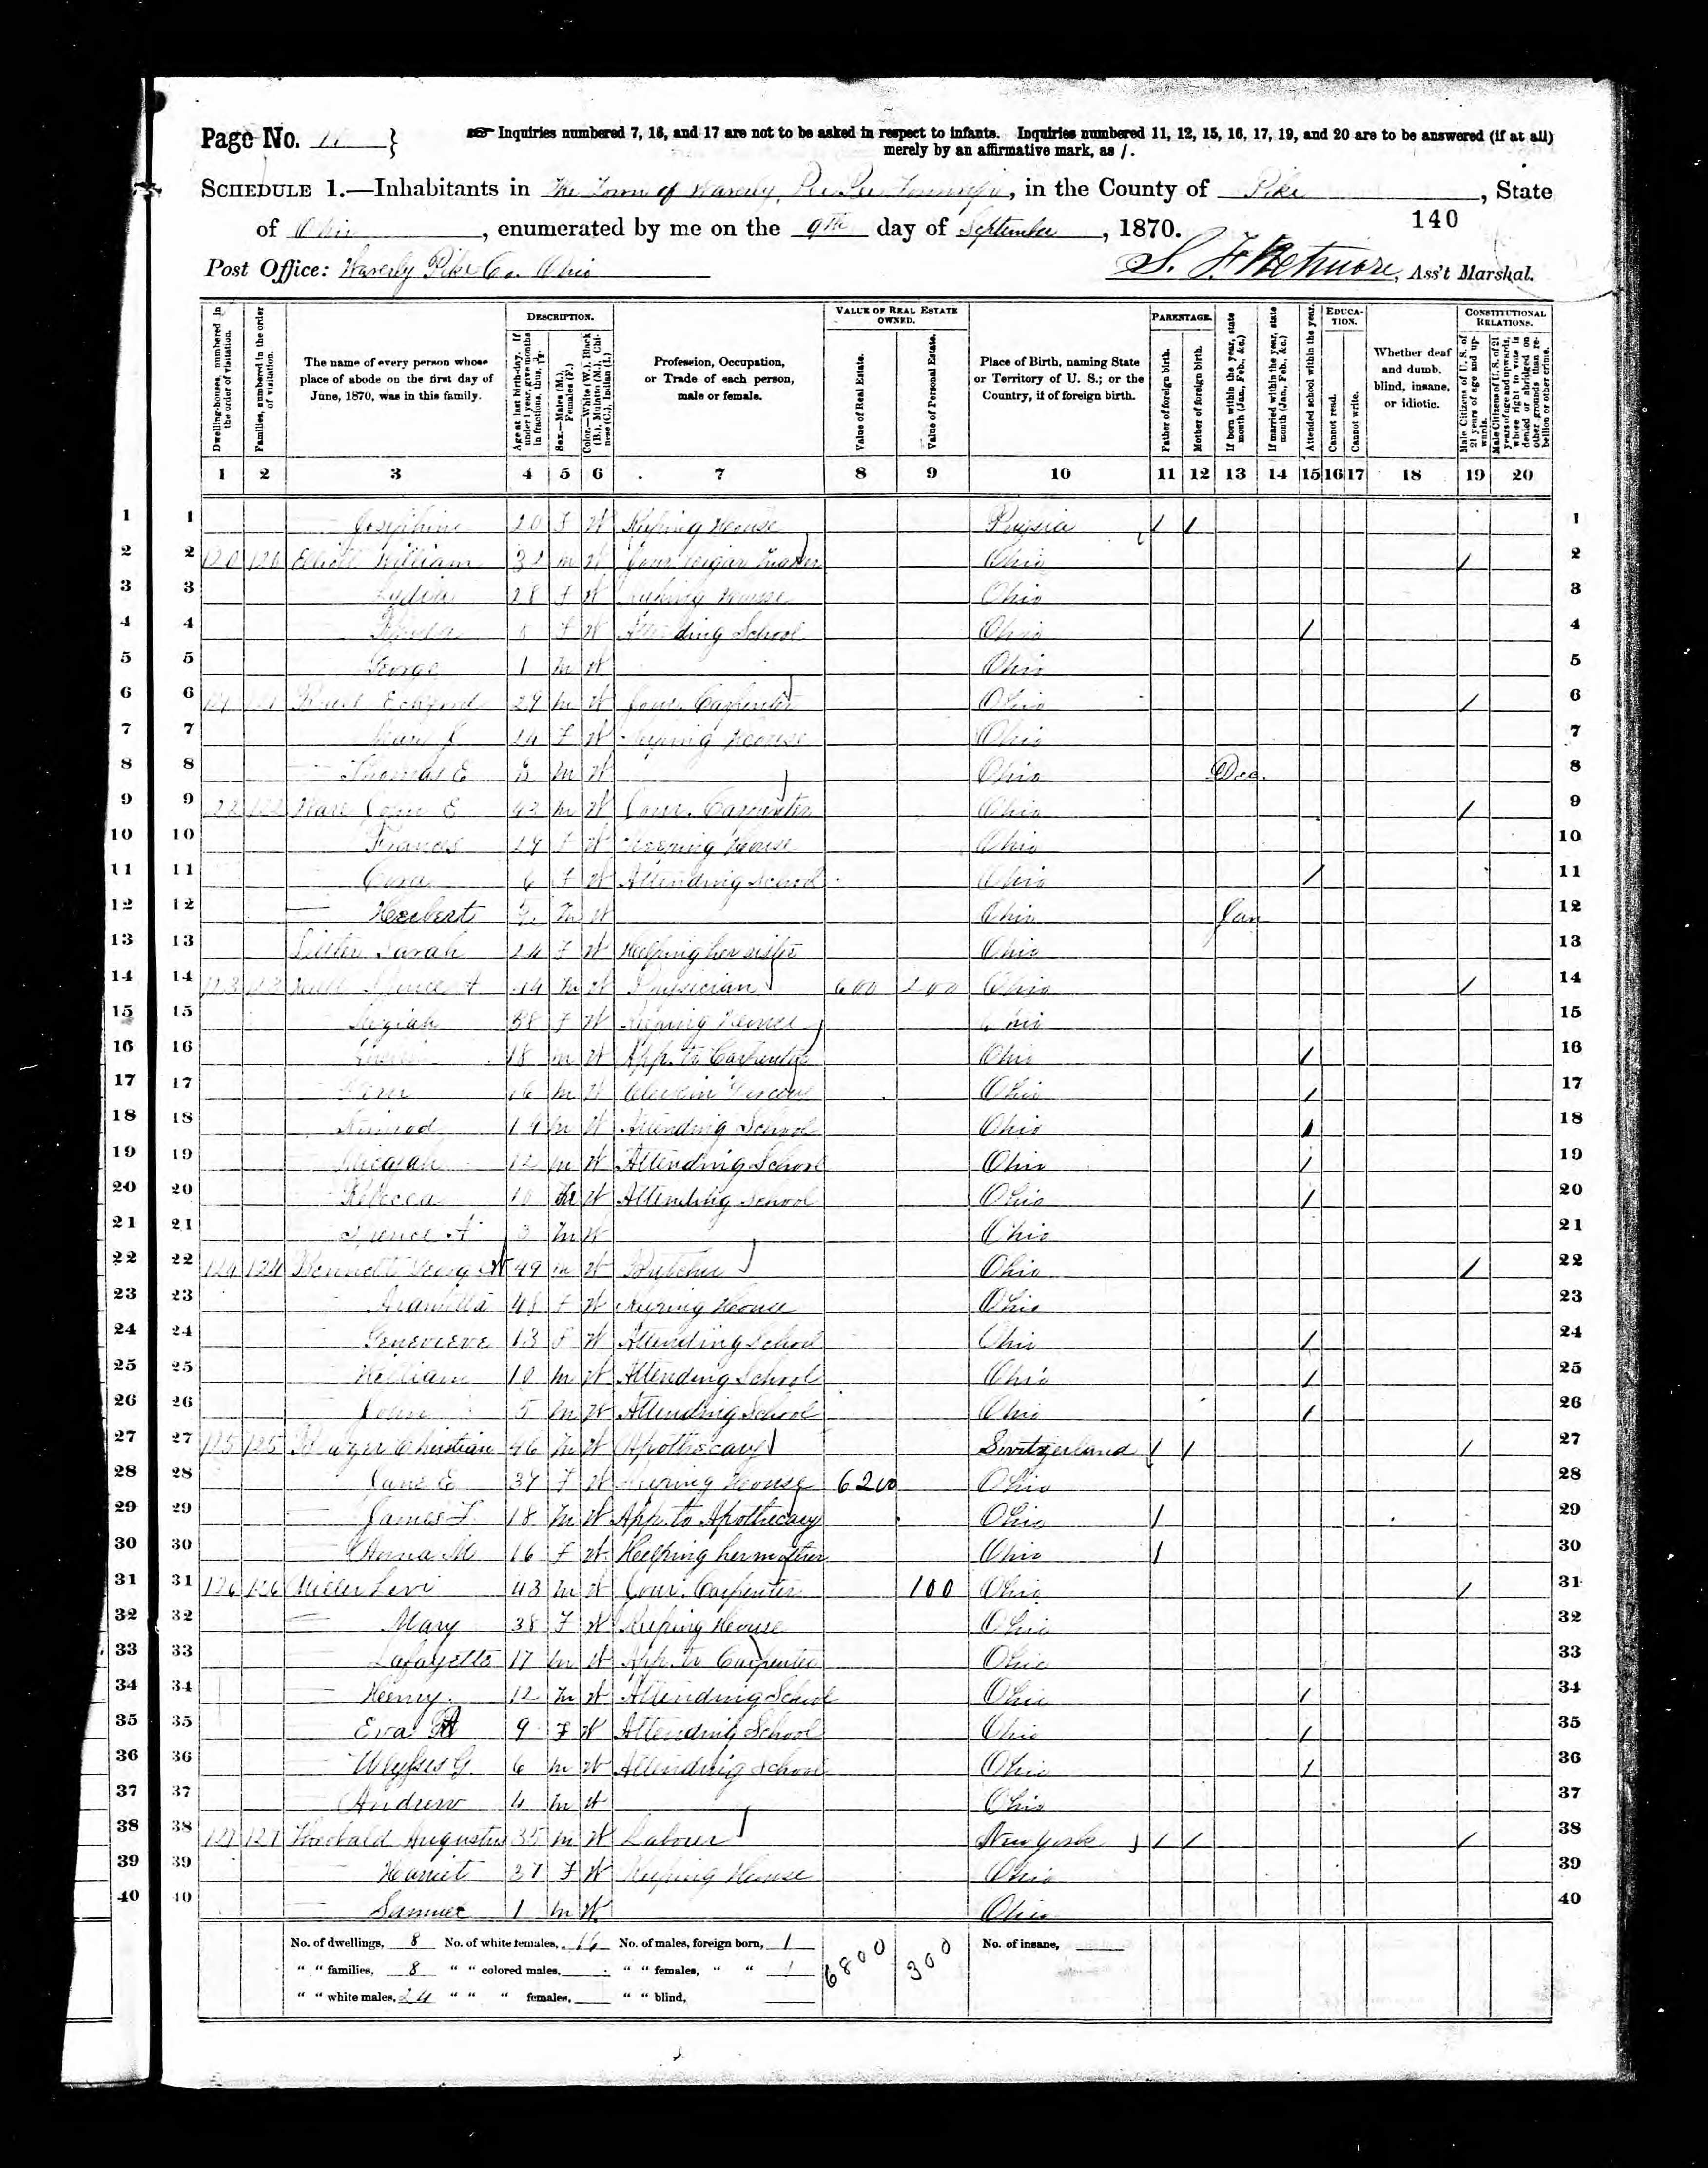 Page No. 11 }
Inquiries numbered 7, 16, and 17 are not to be asked in respect to infants. Inquiries numbered 11, 12, 15, 16, 17, 19, and 20 are to be answered (if at all)
merely by an affirmative mark, as /.
SCHEDULE 1.—Inhabitants in The Town of Waverly, Pee Pee Township, in the County of Pike, State
of Ohio, enumerated by me on the 9th day of September, 1870.
140
Post Office: Waverly Pike Co. Ohio
S. F. Wetmore, Ass't Marshal.
Dwelling-houses, numbered in the order of visitation.
Families, numbered in the order of visitation.
The name of every person whose place of abode on the first day of June, 1870, was in this family.
DESCRIPTION.
Age at last birth-day. If under 1 year, give months in fractions, thus,
Sex.—Males (M.), Females (F.)
Color.—White (W.), Black (B.), Mulatto (M.), Chinese (C.), Indian (I.)
Profession, Occupation, or Trade of each person, male or female.
VALUE OF REAL ESTATE OWNED.
Value of Real Estate.
Value of Personal Estate.
Place of Birth, naming State or Territory of U. S.; or the Country, if of foreign birth.
PARENTAGE.
Father of foreign birth.
Mother of foreign birth.
If born within the year, state month (Jan., Feb., &c.)
If married within the year, state month (Jan., Feb., &c.)
Attended school within the year.
EDUCATION.
Cannot read.
Cannot write.
Whether deaf and dumb, blind, insane, or idiotic.
CONSTITUTIONAL RELATIONS.
Male Citizens of U. S. of 21 years of age and upwards.
Male Citizens of U. S. of 21 years of age and upwards, whose right to vote is denied or abridged on other grounds than rebellion or other crime.
1 2 3 4 5 6 7 8 9 10 11 12 13 14 15 16 17 18 19 20
1 1 — Josephine 20 F W Keeping House Prussia / / 1
2 2 120 120 Elliott William 32 M W Jour. Cigar Maker Ohio / 2
3 3 Lydia 28 F W Keeping House Ohio 3
4 4 F W Attending School Ohio / 4
5 5 George 1 M W Ohio 5
6 6 121 121 29 M W Jour. Carpenter Ohio / 6
7 7 Mary J 19 F W Keeping House Ohio 7
8 8 — Thomas E M W Ohio Dec. 8
9 9 122 122 John E 42 M W Jour. Carpenter Ohio / 9
10 10 Frances 29 F W Keeping House Ohio 10
11 11 Cora 6 F W Attending School Ohio / 11
12 12 — Herbert M W Ohio Jan 12
13 13 Sarah 24 F W Helping her sister Ohio 13
14 14 123 123 Spence A M W Physician 600 200 Ohio / 14
15 15 Keziah 38 F W Keeping House Ohio 15
16 16 18 M W App. to Carpenter Ohio / 16
17 17 16 M W Clerk in Grocery Ohio / 17
18 18 Nimrod 14 M W Attending School Ohio / 18
19 19 Micajah 12 M W Attending School Ohio / 19
20 20 Rebecca 10 W Attending School Ohio / 20
21 21 Spence A 3 M W Ohio 21
22 22 124 124 49 M W Butcher Ohio / 22
23 23 48 F W Keeping House Ohio 23
24 24 Genevieve 13 F W Attending School Ohio / 24
25 25 William 10 M W Attending School Ohio / 25
26 26 John 5 M W Attending School Ohio / 26
27 27 125 125 Christian 46 M W Apothecary Switzerland / / / 27
28 28 Jane E 37 F W Keeping House 6200 Ohio 28
29 29 — James F. 18 M W App. to Apothecary Ohio / 29
30 30 — Anna M 16 F W Helping her mother Ohio / 30
31 31 126 126 Miller Levi 43 M W Jour. Carpenter 100 Ohio / 31
32 32 — Mary 38 F W Keeping House Ohio 32
33 33 — Lafayette 17 M W App. to Carpenter Ohio 33
34 34 — Henry. 12 M W Attending School Ohio / 34
35 35 — Eva 9 F W Attending School Ohio / 35
36 36 — Ulysses G. 6 M W Attending School Ohio / 36
37 37 — Andrew 4 M W Ohio 37
38 38 127 127 Theobald Augustus 35 M W Laborer New York / / / 38
39 39 — Harriet 37 F W Keeping House Ohio 39
40 40 — Samuel 1 M W Ohio 40
No. of dwellings, 8 No. of white females, 16 No. of males, foreign born, 1 6800 300 No. of insane,
" " families, 8 " " colored males, " " females, " " 1
" " white males, 24 " " " females, " " blind,